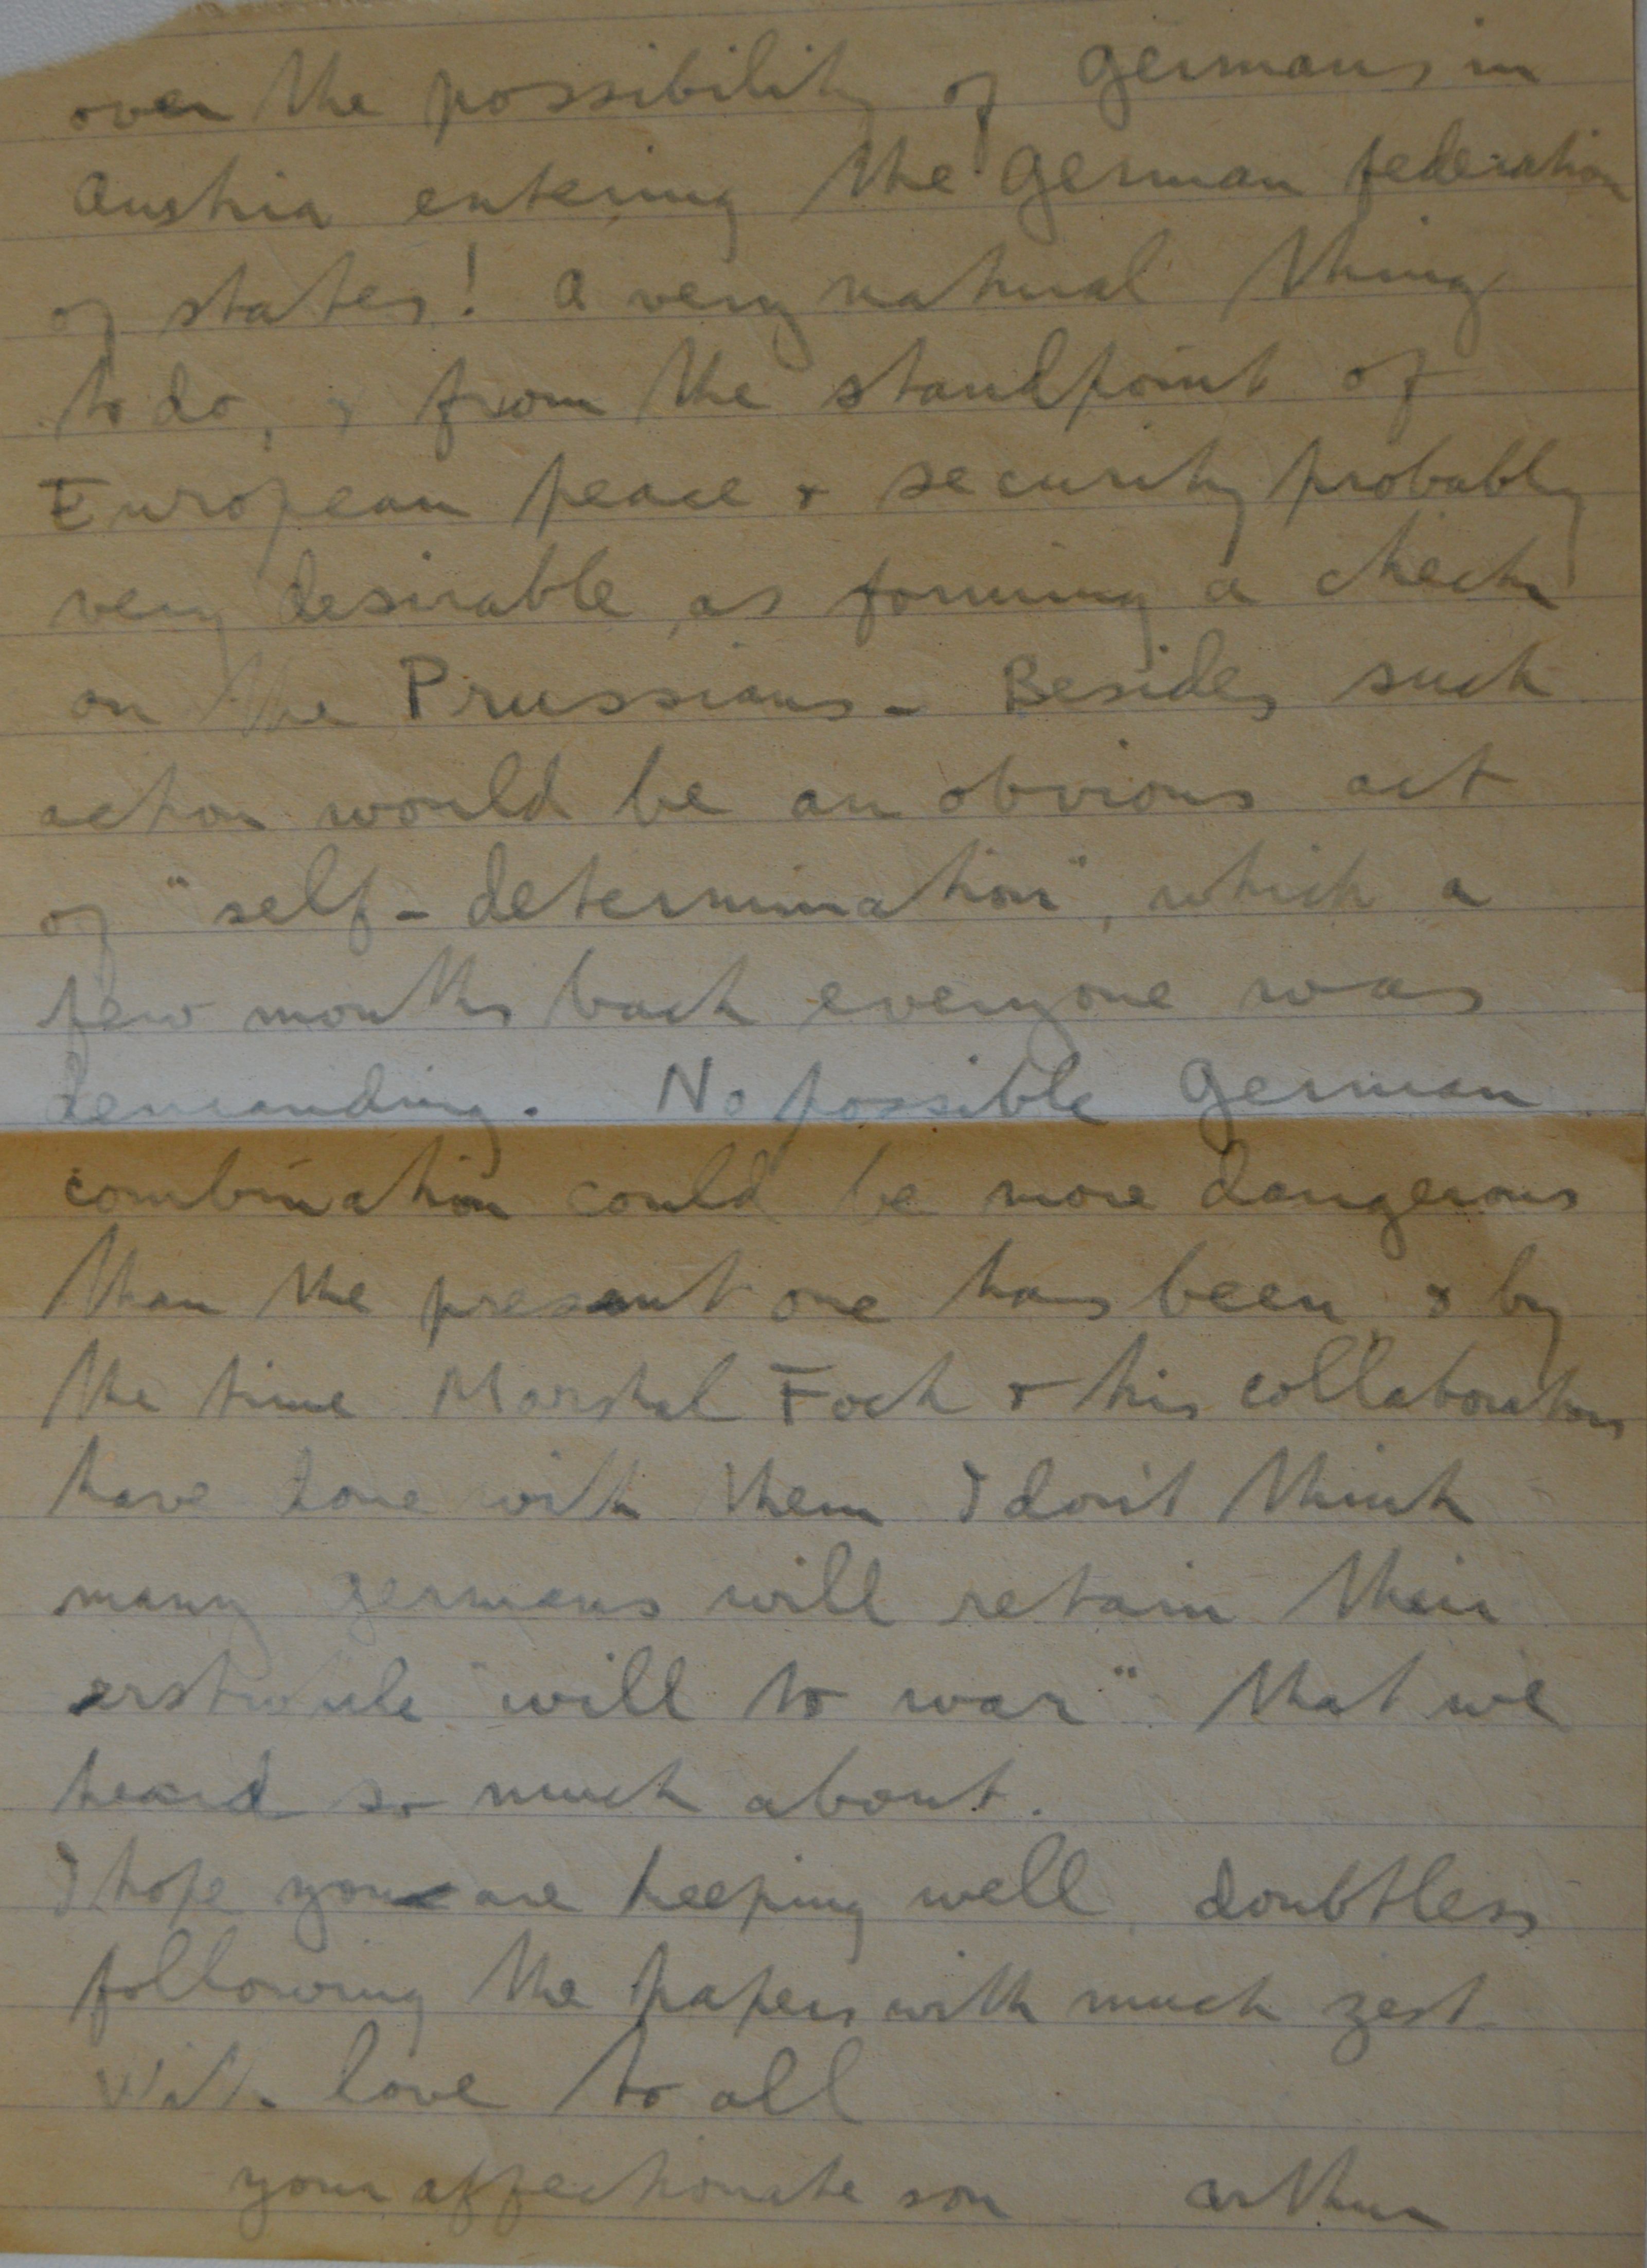 over the possibility of Germans in
Austria entering the German federation
of states! A very natural thing
to do, & from the standpoint of
European peace & security probably
very desirable, as forming a check
on the Prussians - Besides such
action would be an obvious act
of "self-determination", which a
few months back everyone was
demanding. No possible German
combination could be more dangerous
than the present one has been, & by
the time Marshal Foch & his collaborators
have done with them I don't think
many Germans will retain their
erstwhile "will to war" that we
heard so much about.
I hope you are keeping well, doubtless
following the papers with much zest.
With love to all
your affectionate son Arthur